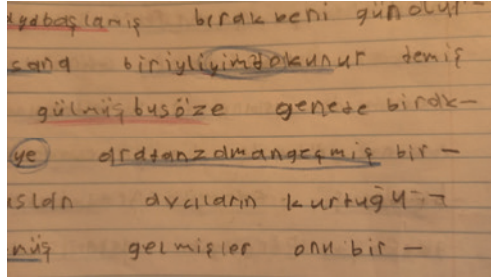 yabaşlamış bırak beni günolur-
sana biriyliyimdokunur demiş
gülmüşbusöze genede bırak-
ye aradanzamangeçmiş bir-
aslan avcıların kurtuğu-
müş gelmişler onu bir-